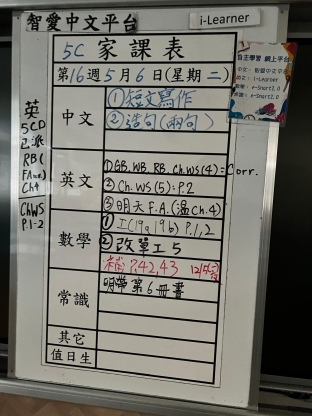 智愛中文平台
i-Learner
5C 家課表
第16週5月6日(星期二)
中文
①短文寫作
②造句(兩句)
英文
①GB, WB, RB, Ch.WS(4)=Corr.
②Ch.WS(5): P.2
③明天F.A.(溫Ch.4)
數學
①工(19a,19b) P.1,2
②改單工5
補P.42,43
常識
明帶第6冊書
其它
值日生
英
5CD
已派
RB(
Ch4
ChWS
P.1-2
自主學習 網上平台